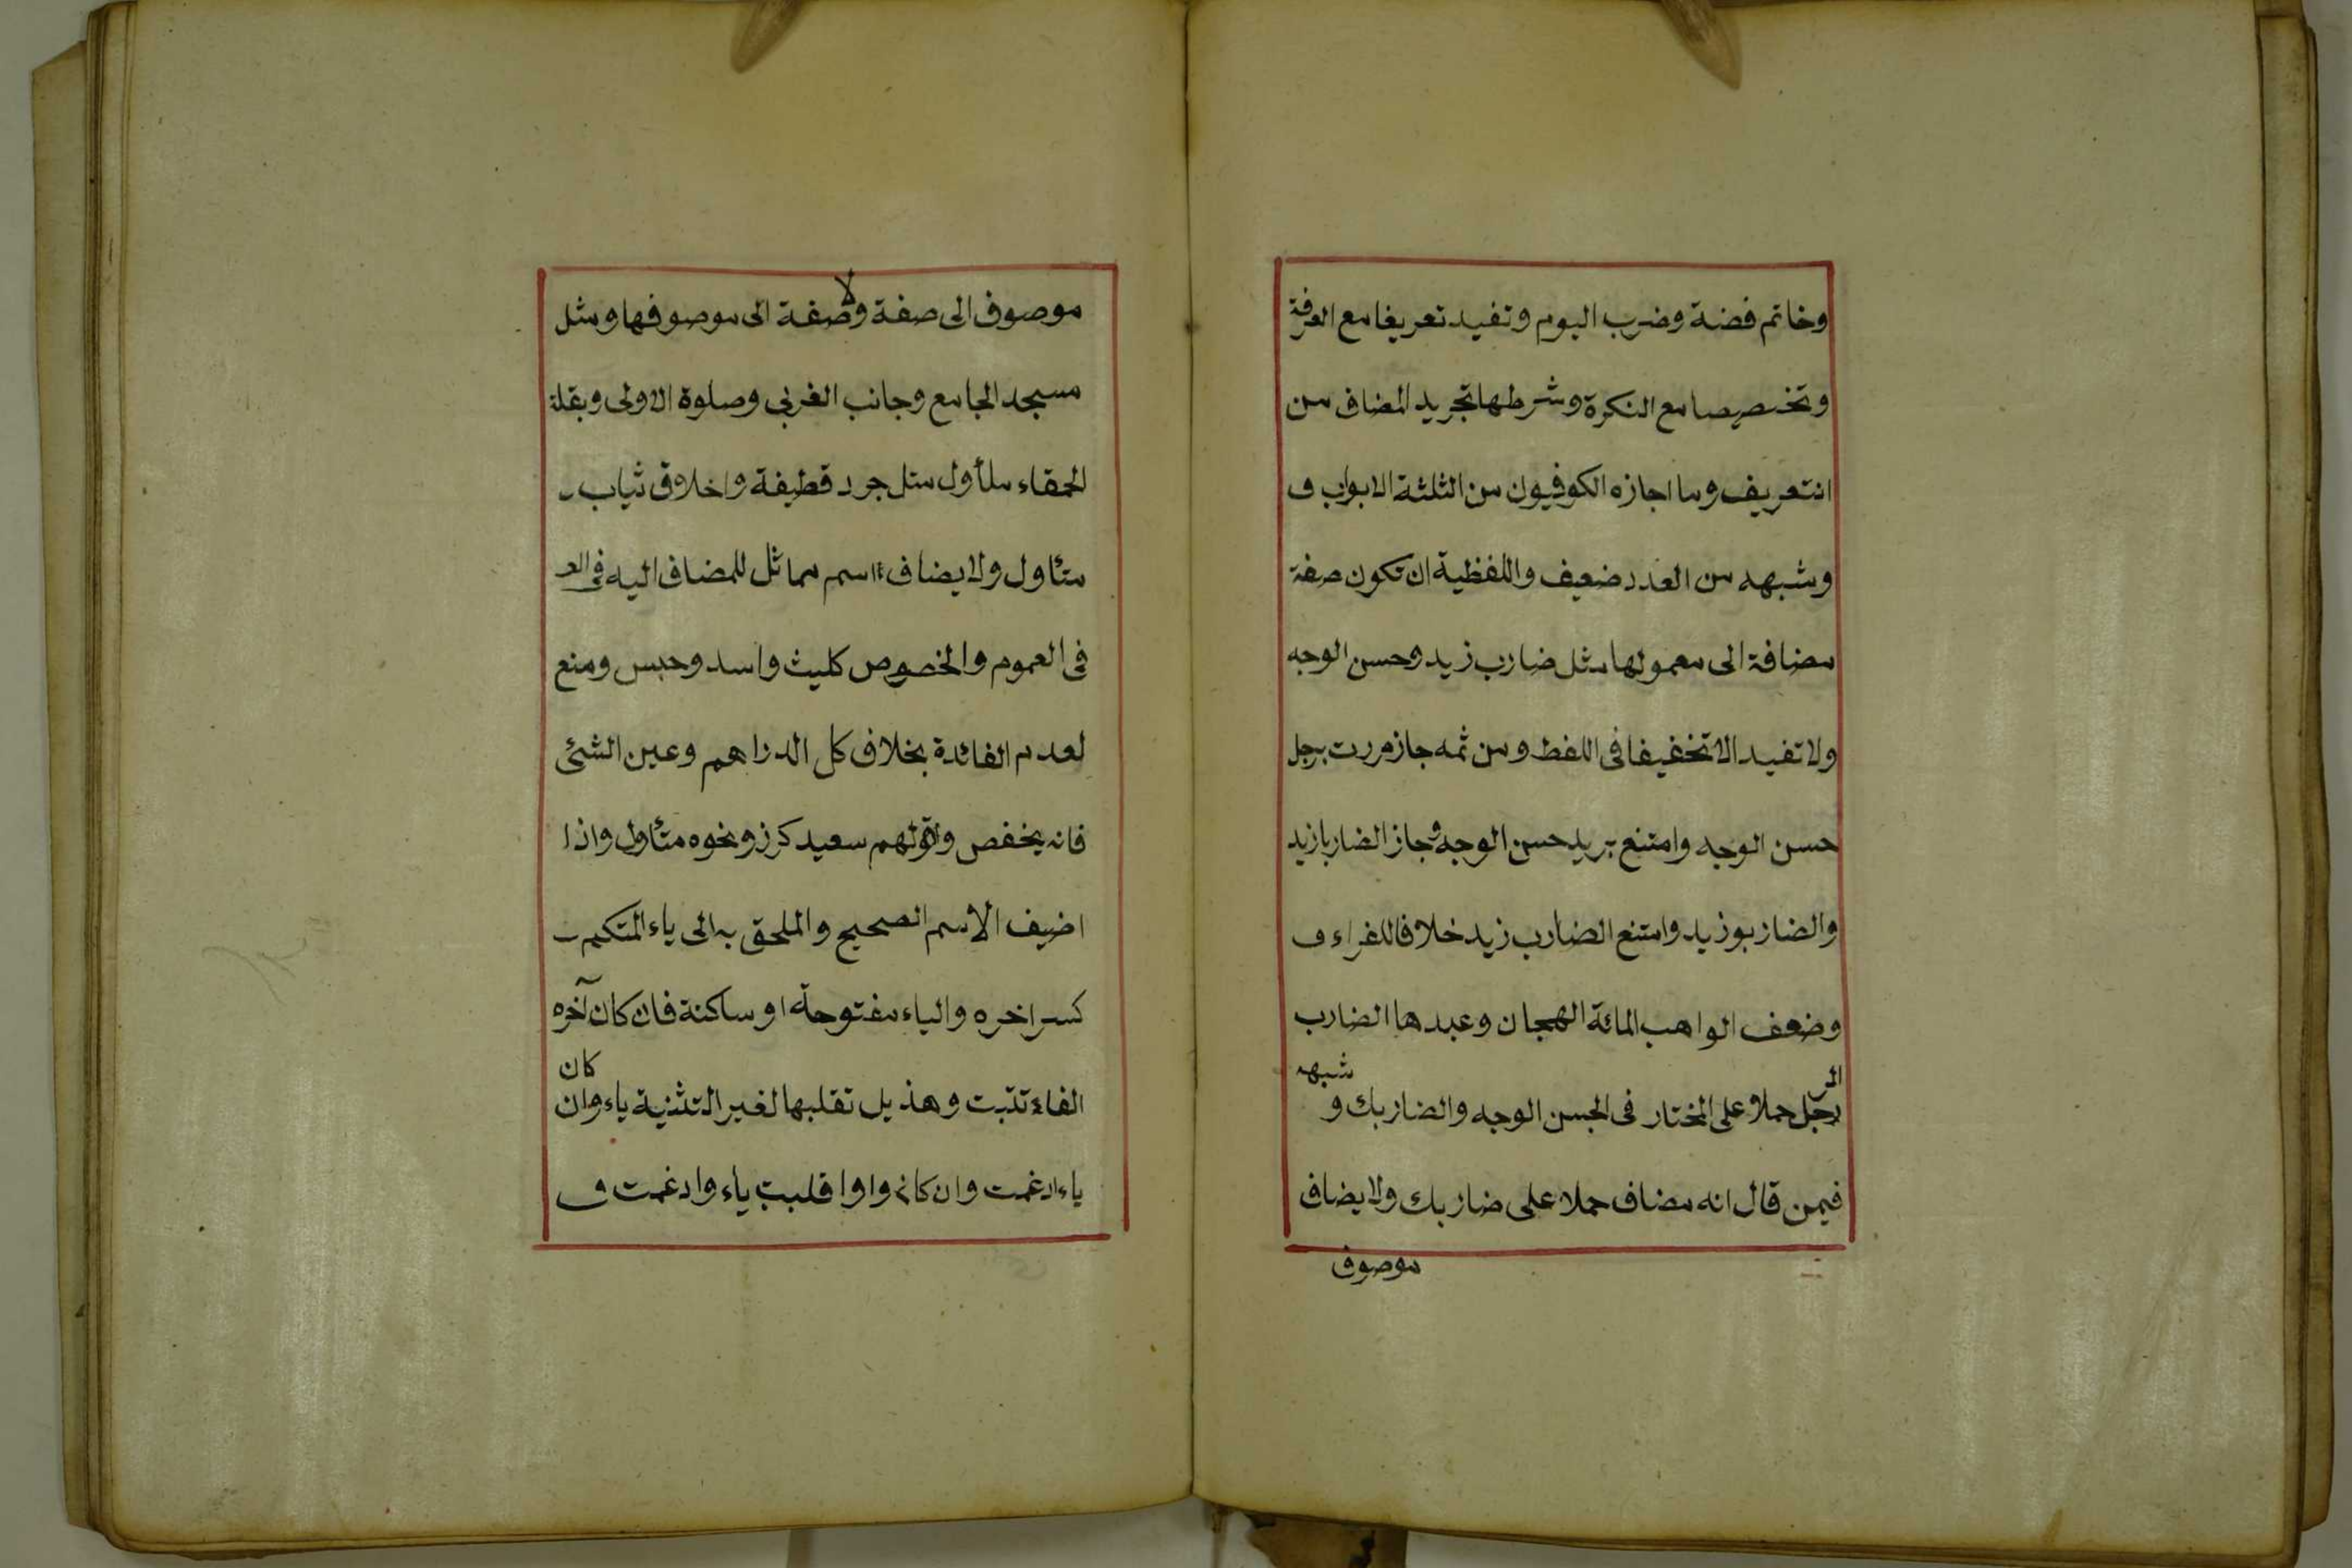 وخاتم فضة وضرب اليوم وتفيد تعريفا مع العرفة
وتخصيصا مع النكرة وشرطها تجريد المضاف من
التعريف وما اجازه الكوفيون من الثلثة الابواب و
وشبهه من العدد ضعيف واللفظية ان تكون صفة
مضافة الى معمولها مثل ضارب زيد وحسن الوجه
ولا تفيد الا تخفيفا فى اللفظ ومن ثمه جاز مررت برجل
حسن الوجه وامتنع بزيد حسن الوجه وجاز الضاربا زيد
والضاربو زيد وامتنع الضارب زيد خلافا للفراء و
وضعف الواهب المائة الهجان وعبدها الضارب
الر شبهه
رجل حملا على المختار فى الحسن الوجه والضاربك و
فيمن قال انه مضاف حملا على ضاربك ولا يضاف
موصوف
لا
موصوف الى صفة وصفة الى موصوفها ومثل
مسجد الجامع وجانب الغربي وصلوة الاولى وبقلة
الحمقاء متأول مثل جرد قطيفة واخلاق ثياب
متأول ولا يضاف اسم مماثل للمضاف اليه فى الع
فى العموم والخصوص كليث واسد وحبس ومنع
لعدم الفائدة بخلاف كل الدراهم وعين الشئ
فانه يخفص وقولهم سعيد كرز ونحوه متأول واذا
اضيف الاسم الصحيح والملحق به الى ياء المتكم
كسر اخره والياء مفتوحة او ساكنة فان كان آخره
كان
الفاء تثبت وهذيل تقلبها لغير التثنية ياء وان
ياء ادغمت وان كان واوا قلبت ياء وادغمت و